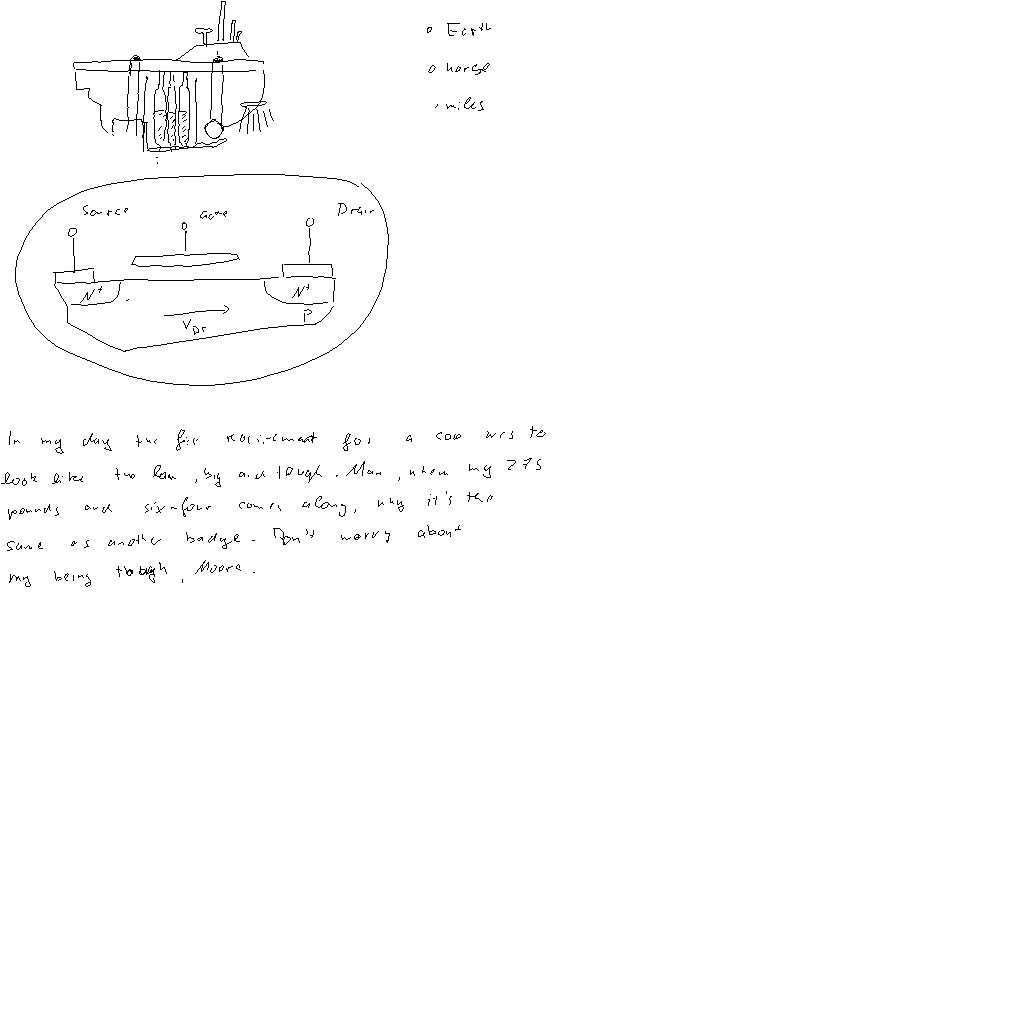 Earth
horse
miles
Source Gate Drain
N+ N+
P
V
In my day the requirement for a cop was to
look like the law, big and tough. Man, when my 275
pounds and six-four comes along, why it's the
same as another badge. Don't worry about
my being tough, Moore.